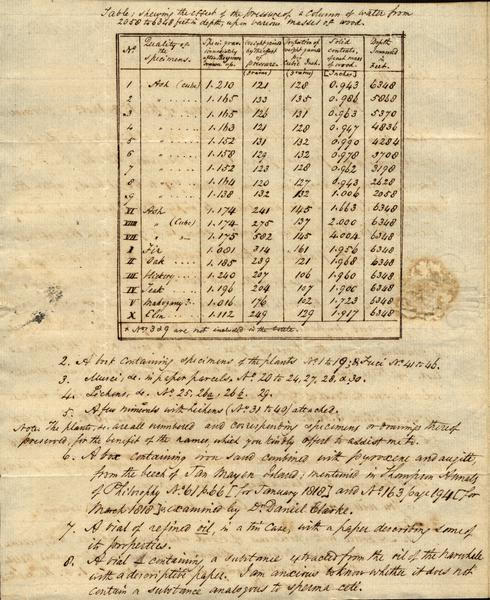 Table; shewing the effect of the pressure of a Column of water from
2058 to 6348 feet in depth, upon various masses of wood.
No. Quality of the specimens. Speci. grav. immediately Weight gained by the effect of pressure. Proportion of weight gained Cubic Inch. Solid contents, of wood. Depth Immersed in Feet.
(Grains) (Grains) (Inches)
1 Ash (Cube) 1.210 121 128 0.943 6348
2 " 1.165 133 135 0.986 5868
3 " 1.165 126 131 0.963 5370
4 " 1.163 121 128 0.947 4836
5 " 1.152 131 132 0.990 4284
6 " 1.158 129 132 0.978 3708
7 " 1.152 123 128 0.962 3198
8 " 1.164 120 127 0.943 2628
9 " 1.138 132 132 1.006 2058
VI Ash 1.174 241 145 1.663 6348
VIII " (Cube) 1.174 275 137 2.000 6348
VII " 1.175 582 145 4.004 6348
I Fir 1.081 314 161 1.956 6348
II Oak 1.185 239 121 1.968 6348
III Hickory 1.240 207 106 1.960 6348
IV Teek 1.196 204 107 1.900 6348
V Mahogany 1.016 176 102 1.723 6348
X Elm 1.112 249 129 1.917 6348
* No. 3 & 9 are not included in the
2. A box containing specimens of the plants No. 1 to 19; & Fuci No. 41 to 46.
3. Musci, &c. in paper parcels. No. 20 to 24, 27, 28, & 30.
4. Lichens, &c. No. 25, 26 26 29.
5. A few minerals with Lichens (No. 31 to 40) attached.
Note. The plants, &c. are all numbered and corresponding specimens or drawings thereof
preserved, for the benefit of the names, which you kindly offer to assist me to.
6. A box containing iron sand combined with pyroxene and augite,
from the beech of Jan Mayen Island; mentioned in Thompson Annals
of Philosophy No. 61 p. 66 [for January 1818] and No. 63 page 194 [for
March 1818] examined by Dr. Daniel Clarke.
7. A vial of refined oil, in a tin Case, with a paper describing some of
its properties.
8. A vial containing a substance extracted from the oil of the narwhale
with a descriptive paper. I am anxious to know whether it does not
contain a substance analogous to sperma ceti.